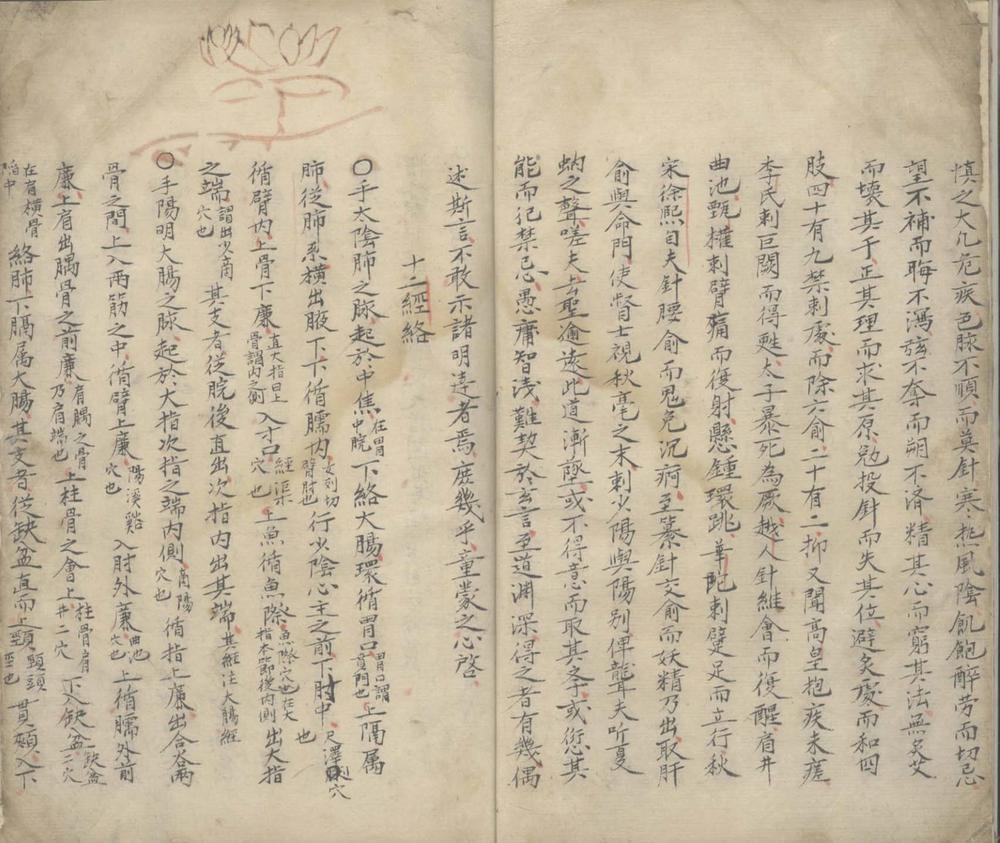 慎之大凢危疾色脉不順而莫針寒热風陰飢飽醉劳而切忌
望不補而晦不瀉弦不奪而朔不济精其心而窮其法無灸艾
而壞其于正其理而求其原勉投針而失其位避灸處而和四
肢四十有九禁刺處而除六俞二十有二抑又聞高皇抱疾未瘥
李民刺巨闕而得甦太子暴死為厥越人針維會而復醒肩井
曲池甄權刺臂痛而復射懸鍾環跳華陀刺躄足而立行秋
宋徐熈自夫針腰俞而鬼免沉痾至纂針交俞而妖精乃出取肝
俞與命門使瞽士視秋毫之末刺少陽與陽別俾聾夫听夏
蚋之聲嗟夫去聖逾遠此道漸墜或不得意而取其或愆其
能而犯禁忌愚庸智浅難契於玄言至道渊深得之者有幾偶
述斯言不敢示諸明達者焉庶幾乎童蒙之心啓
十二經絡
〇手太陰肺之脉起於中焦在胃中脘下絡大腸環循胃口胃口謂賁門也上隔属
肺從肺系横出腋下下循臑内女到切臂肘也行少陰心主之前下肘中尺澤穴也
循臂内上骨下廉直大指曰上骨謂内之側入寸口經渠穴也上魚循魚際魚際穴也在大指本節後内側出大指
之端謂出少商穴也其支者從腕後直出次指内出其端其經注大腸經
〇手陽明大腸之脉起於大指次指之端内側商陽穴也循指上廉出合谷兩
骨之間上入兩筋之中循臂上廉陽溪谿穴也入肘外廉曲池穴也上循臑外前
廉上肩出髃骨之前廉肩髃之骨乃肩端也上柱骨之會上柱骨肩井二穴下入缺盆缺盆二穴
在肩横骨陷中絡肺下膈属大腸其支者從缺盆直而上頸頸頭莖也貫頰入下